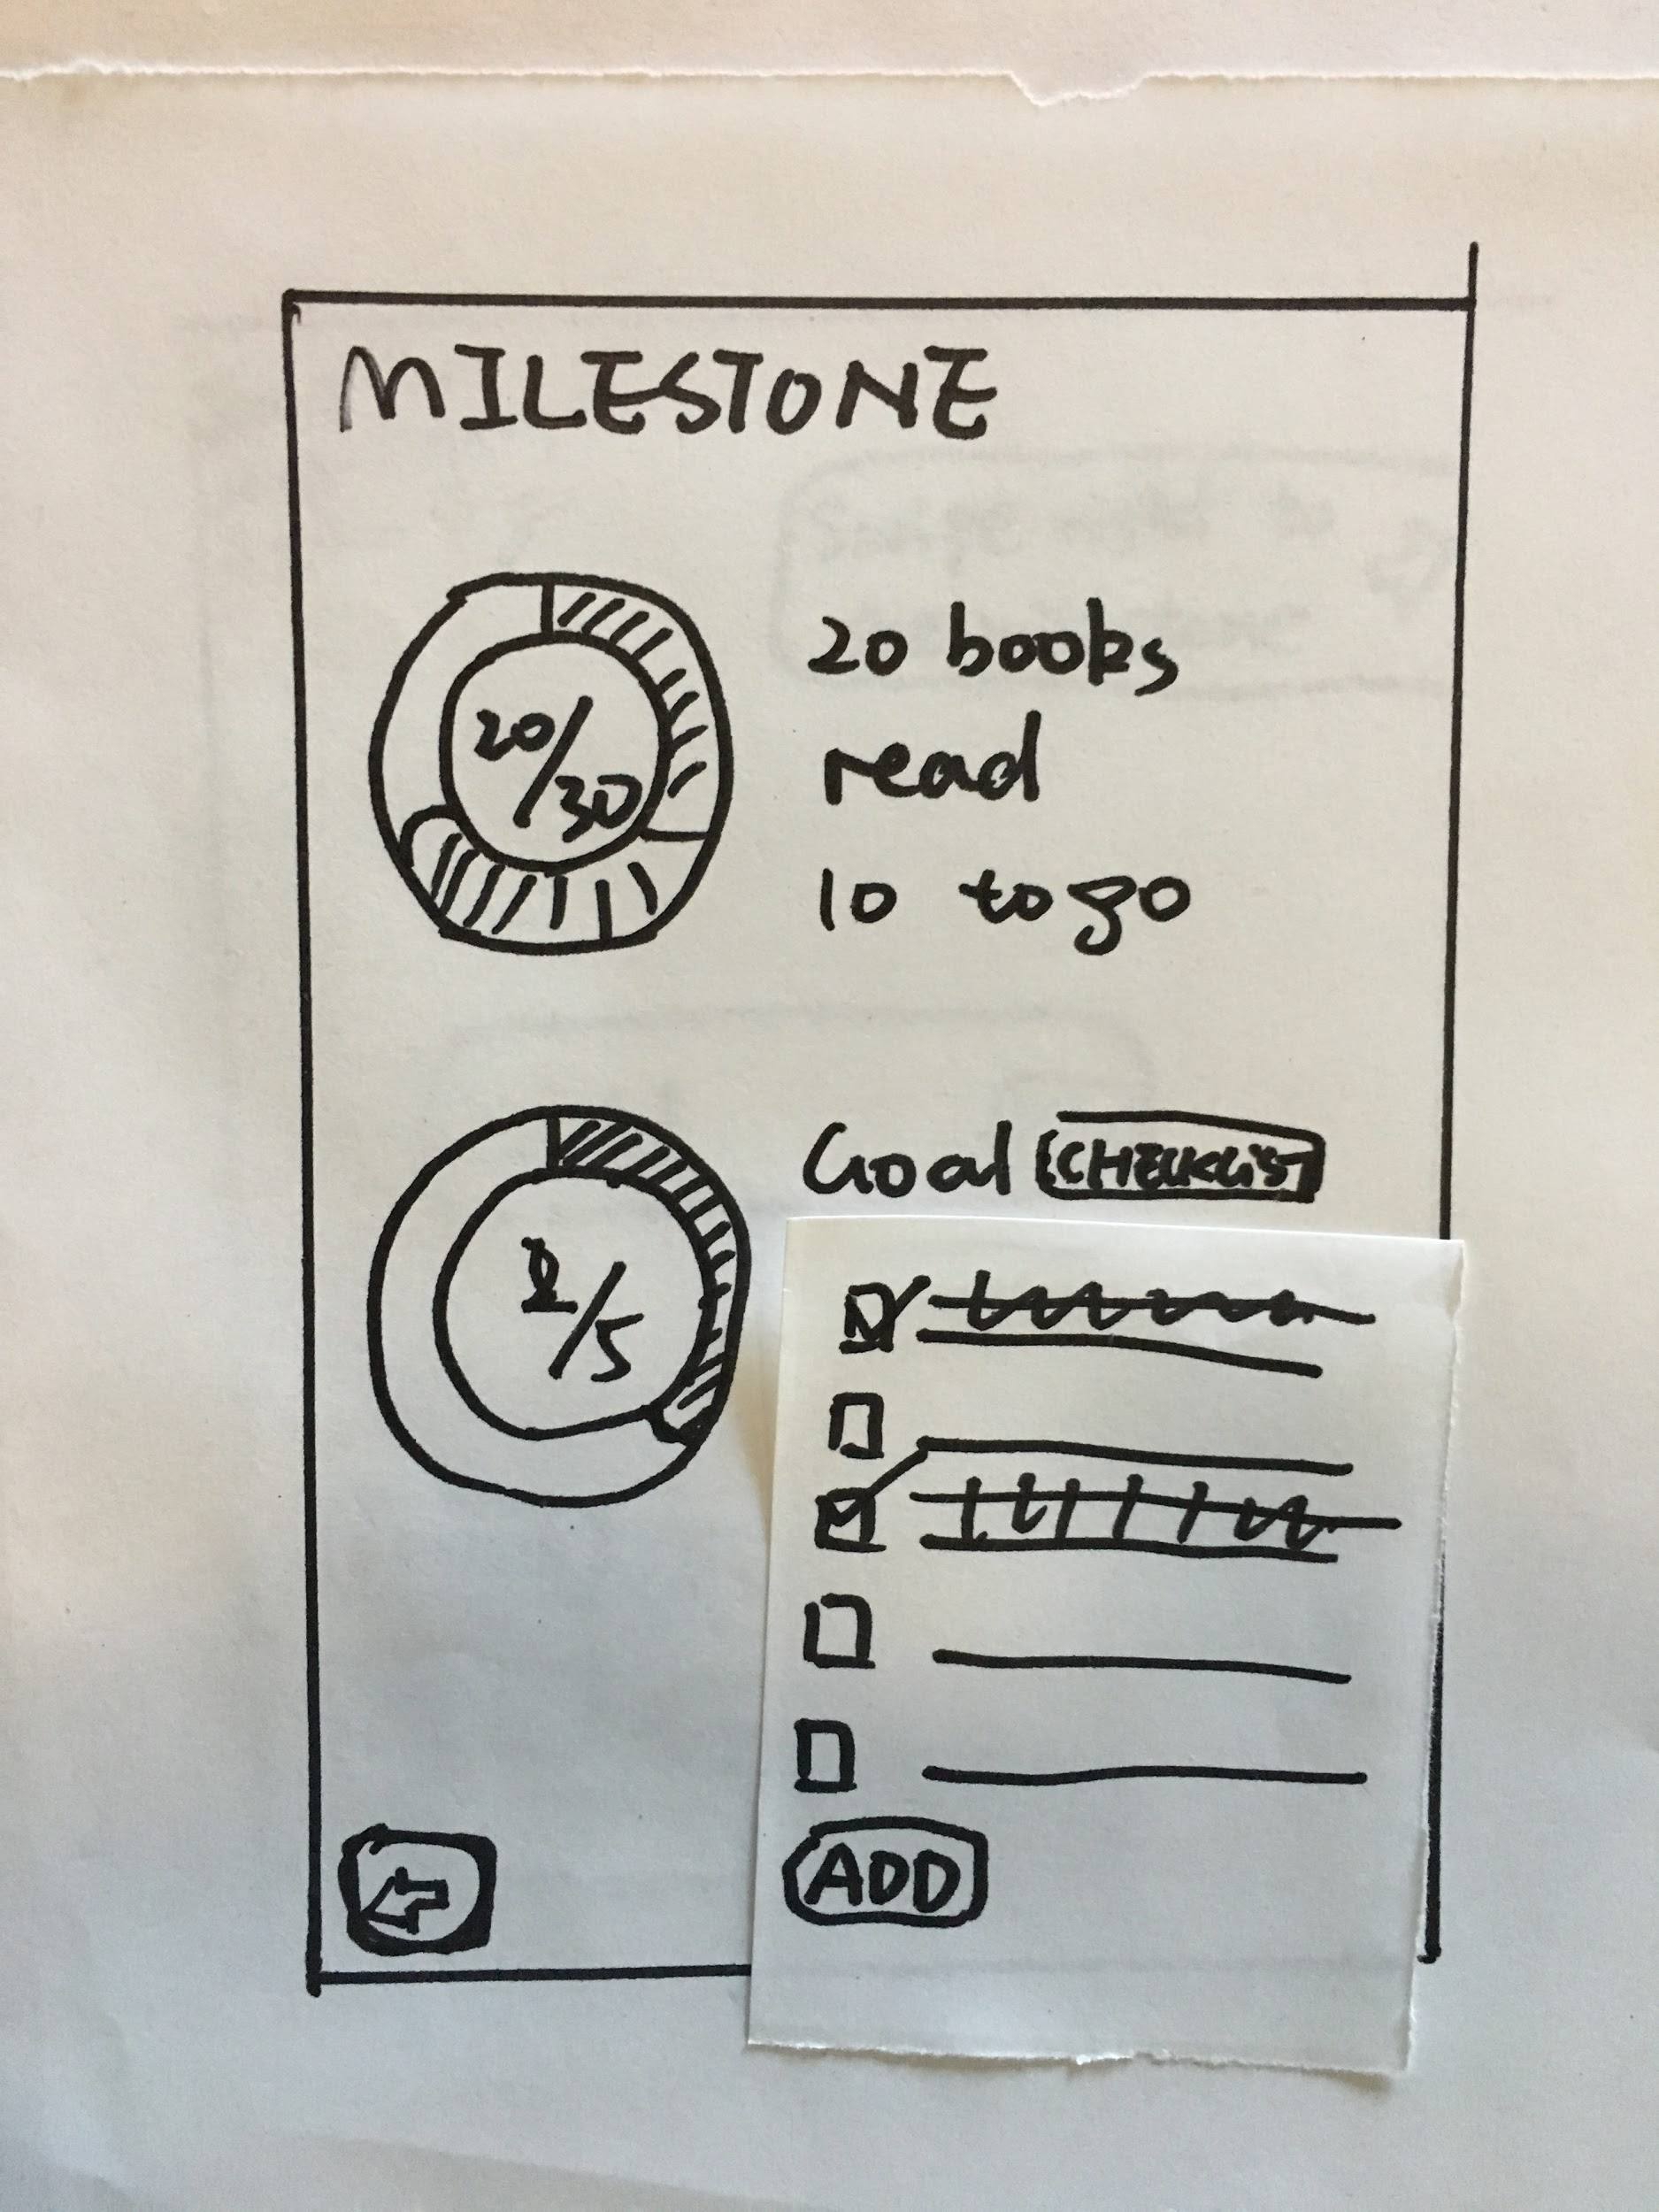 MILESTONE
20/30
20 books
read
10 to go
Goal
CHECKLIST
2/5
ADD